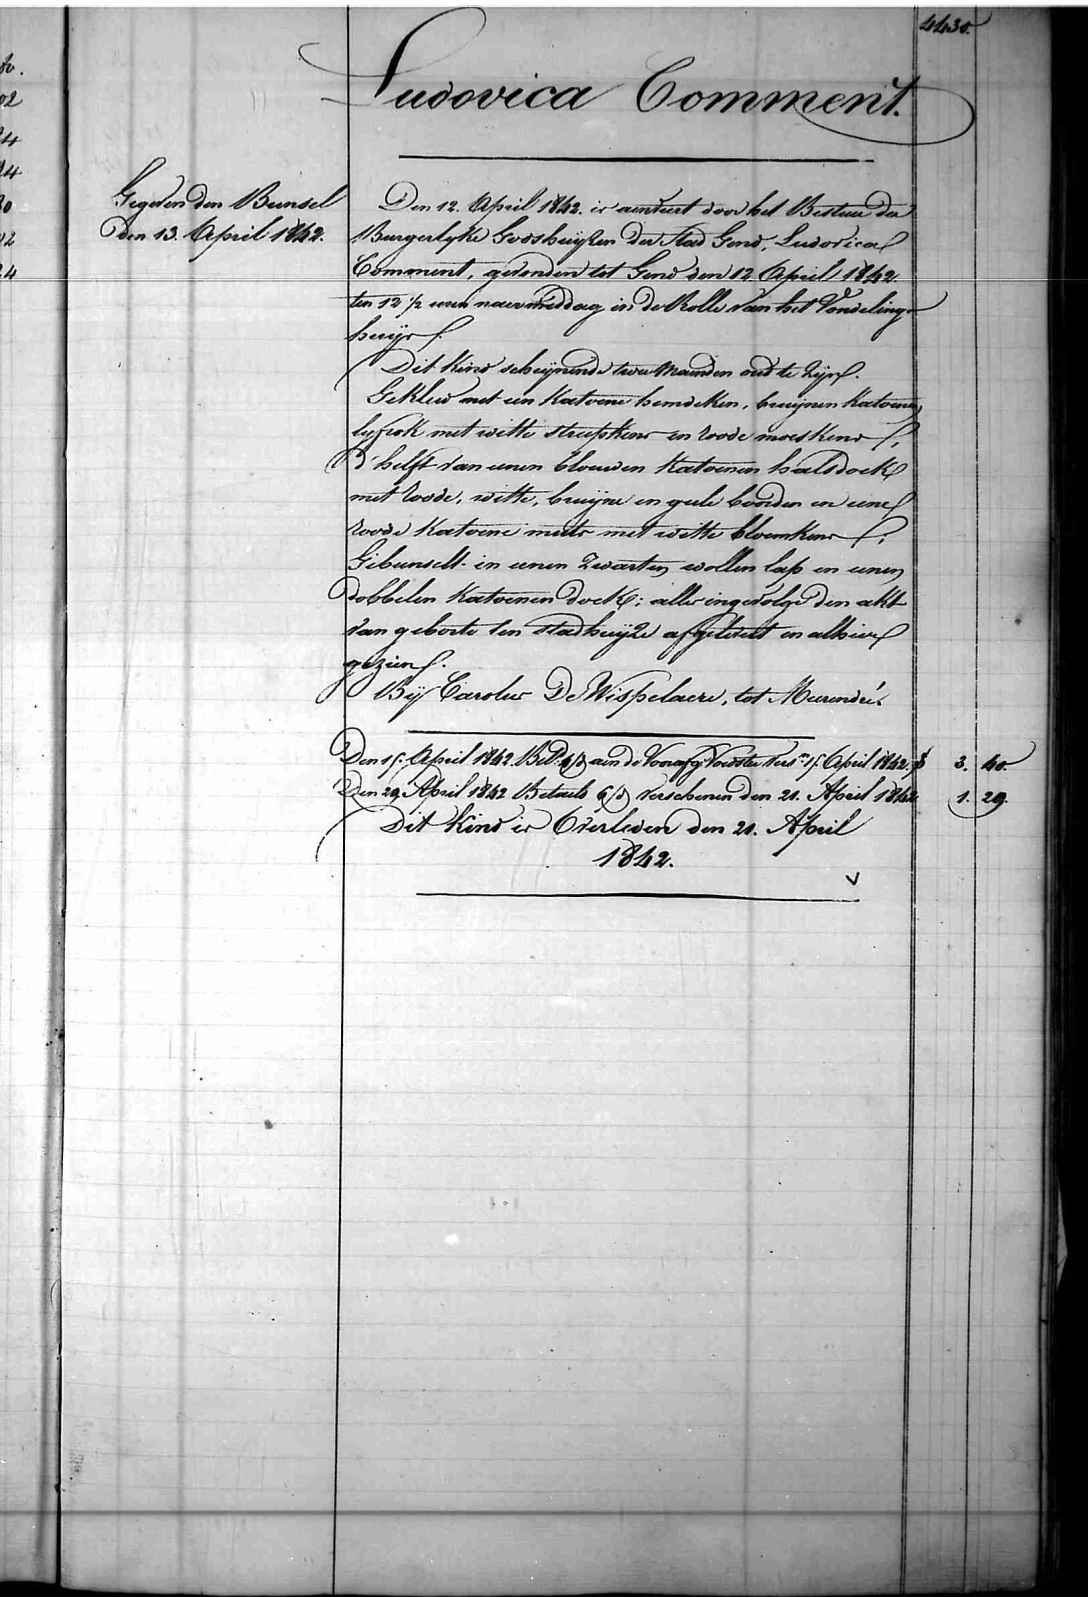 4430.
Ludovica Comment.
Gegeven den Bunsel
den 13. April 1842.
Den 12. April 1842. is aenveert door het Bestuer der
Burgerlyke Godshuyzen der Stad Gend, Ludovica
Comment, gevonden tot Gend den 12. April 1842.
ten 12 1/2 uren naermiddag in de Rolle van het Vondelings
huijs.
Dit Kind scheijnende twee Maenden oud te Zijn.
Gekleed met een Katoene hemdeken, bruijnen Katoenen
lyfrok met witte streepkens en roode moeskens,
d'helft van eenen blouwen Katoenen halsdoek
met roode, witte, bruijne en geele boorden en eene
roode Katoene muts met witte bloemkens;
Gebunselt in eenen Zwarten wollen lap en eenen
dobbelen Katoenen doek; alles ingevolge den akt
van geboorte ten stadhuijze afgeleverd en alhier
gezien.
Bij Carolus De Wispelaere, tot Meerendré.
Den 15: April 1842 Bet: aen de Voorafg Voedster vers.n 15 April 1842. 3. 40.
Den 29 April 1842 Betaelt verschenen den 21. April 1842 1. 29.
Dit Kind is Overleden den 21. April
1842.
02
24